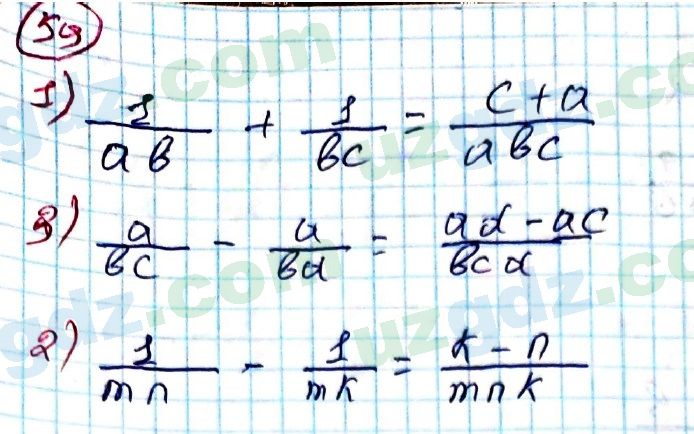 59
1) 1/ab + 1/bc = c+a/abc
3) a/bc - a/bd = ad-ac/bcd
2) 1/mn - 1/mk = k-n/mnk
uzgdz.com